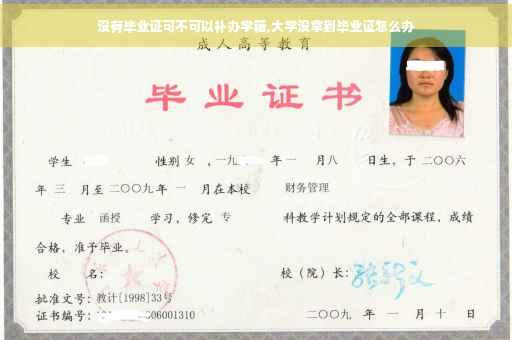 没有毕业证可不可以补办学籍,大学没拿到毕业证怎么办
成人高等教育
毕业证书
学生 性别 女 ，一九 年一 月八 日生，于二〇〇六
年 三 月至二〇〇九年 一 月在本校 财务管理
专业 函授 学习，修完 专 科教学计划规定的全部课程，成绩
合格，准予毕业。
校 名： 校（院）长：
批准文号：教计[1998]33号
证书编号： 006001310 二〇〇九 年 一 月 十 日